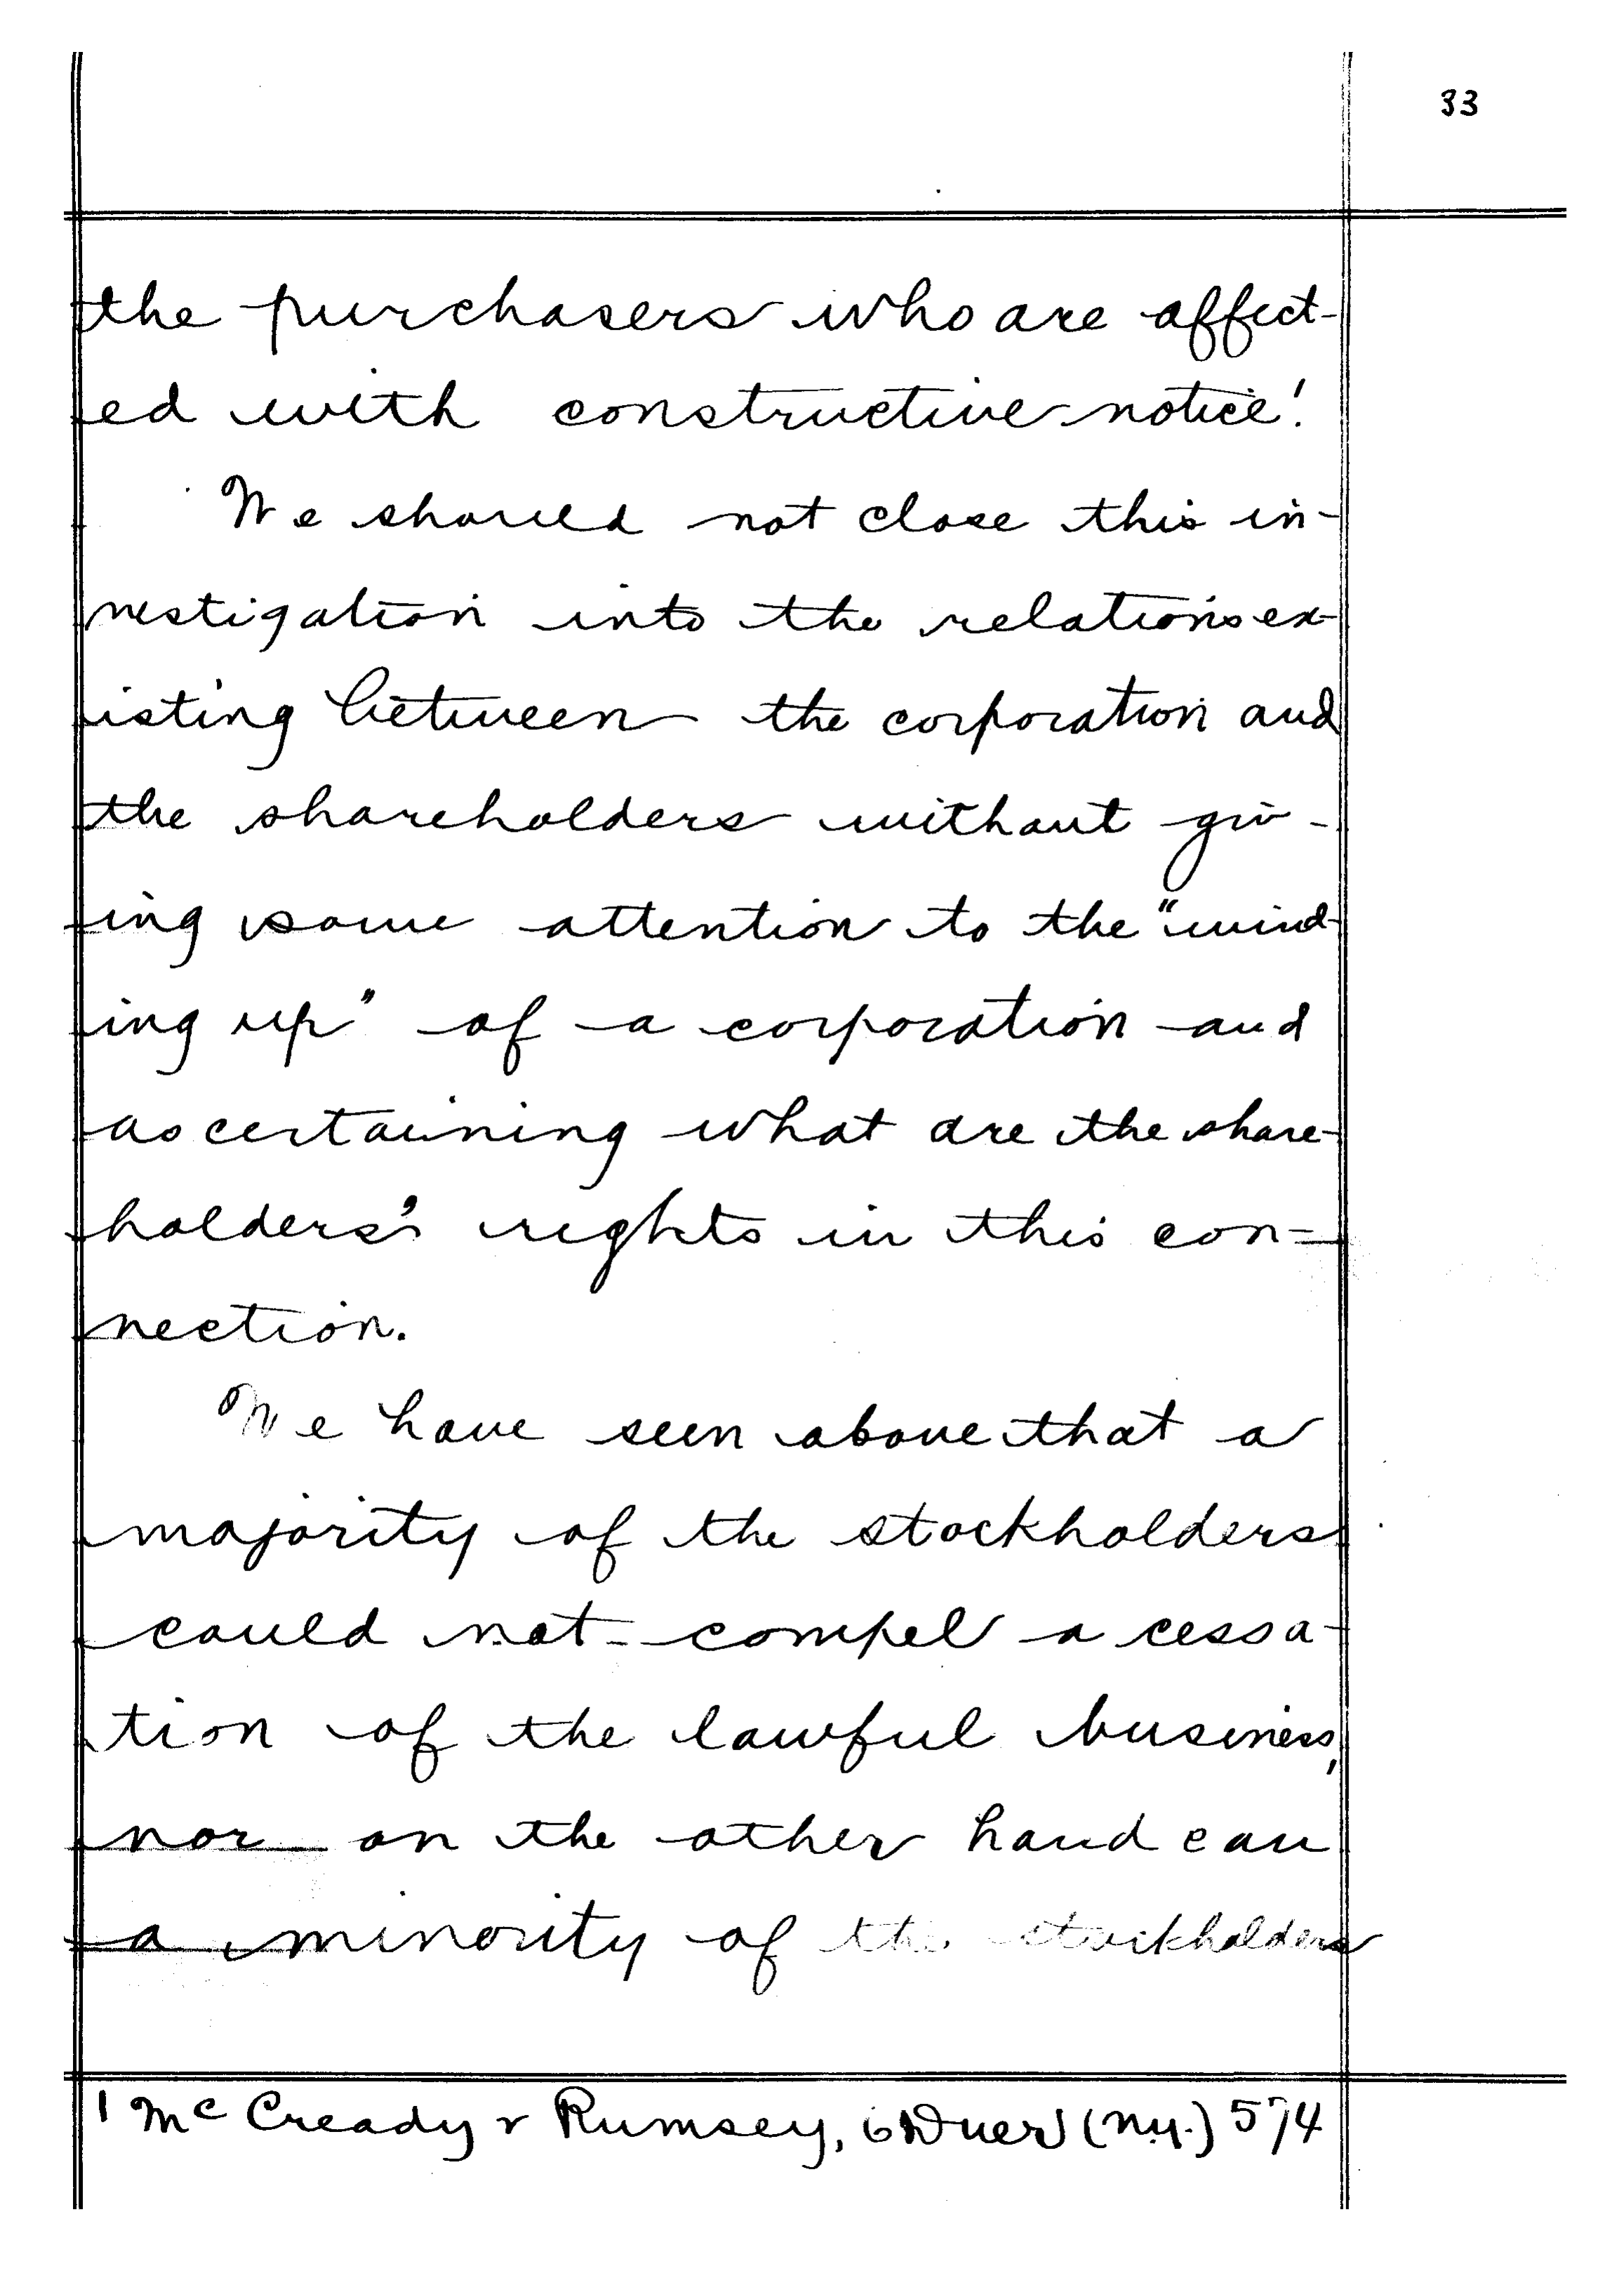 33
the purchasers who are affect-
ed with constructive notice.¹
We should not close this in-
vestigation into the relations ex-
isting between the corporation and
the shareholders without giv-
ing some attention to the "wind-
ing up" of a corporation and
ascertaining what are the share-
holders's rights in this con-
nection.
We have seen above that a
majority of the stockholders
could not compel a cessa-
tion of the lawful business,
nor on the other hand can
a minority of the stockholders
1 McCready v Rumsey, 6 Duer (N.Y.) 574